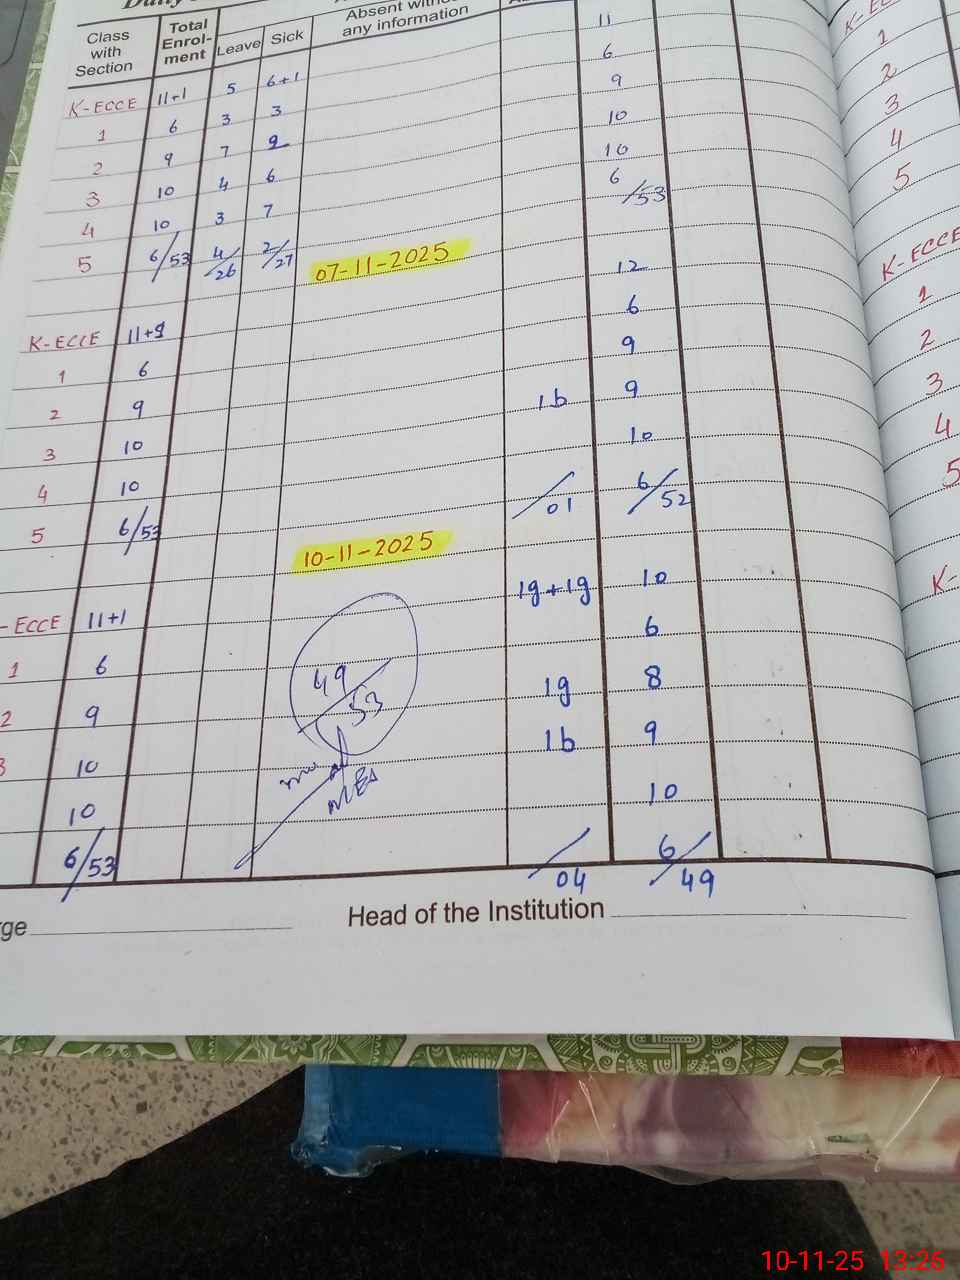 Class with Section Total Enrol-ment Leave Sick Absent without any information
11
K-ECCE 11+1 5 6+1 6
1 6 3 3 9
2 9 7 2 10
3 10 4 6 10
4 10 3 7 6/53
5 6/53 4/26 2/27
07-11-2025
K-ECCE 11+1 12
1 6 6
2 9 9
3 10 1b 9
4 10 10
5 6/53 /01 6/52
10-11-2025
-ECCE 11+1 1g+1g 10
1 6 6
2 9 1g 8
3 10 1b 9
10 10
6/53 /04 6/49
49/53
MEA
rge
Head of the Institution
K-ECCE
1
2
3
4
5
K-ECCE
1
2
3
4
5
K-
10-11-25 13:26